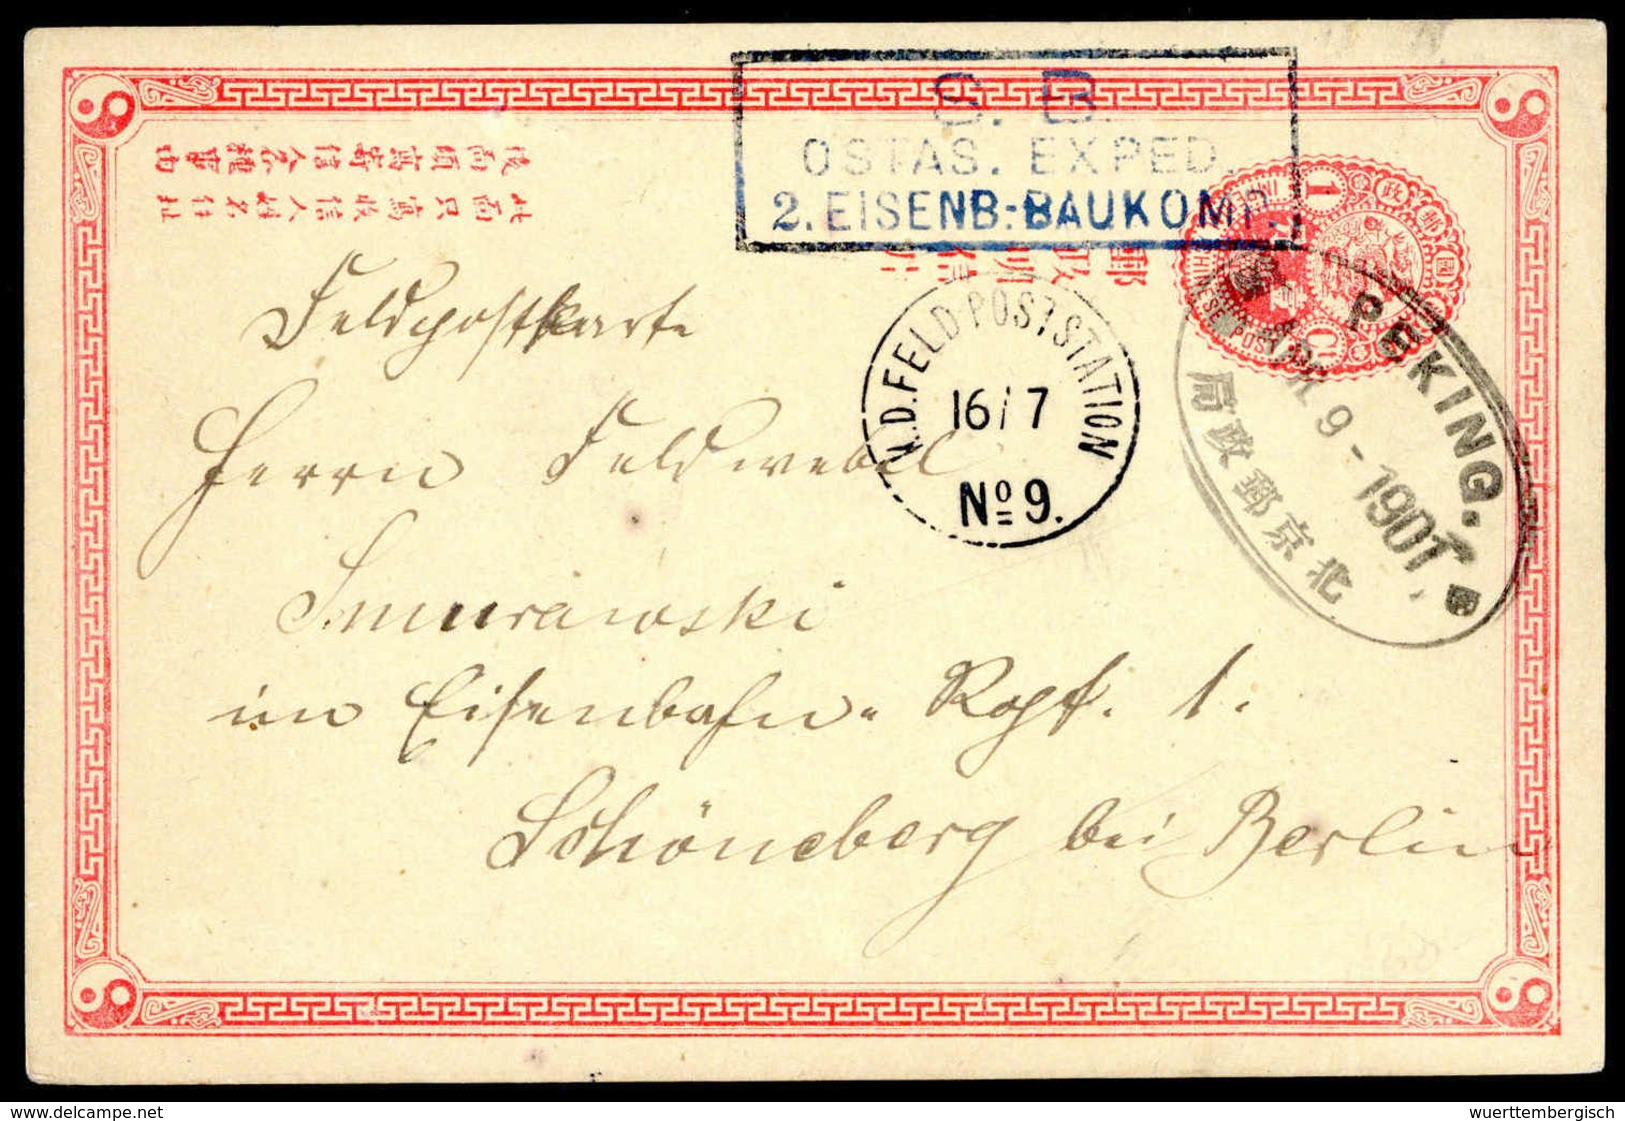 S. B.
OSTAS. EXPED.
2. EISENB:-BAUKOMP.
此面只寫收信人姓名住址
後面頃寫寄信人各種事由
大清郵政
1
CHINESE POST
K.D.FELD-POSTSTATION
16/7
No 9.
PEKING.
APR 9-1901.
北京郵政局
Feldpostkarte
Herrn Feldwebel
Smurawski
im Eisenbahn- Rgt. 1.
Schöneberg bei Berlin
www.delcampe.net
wuerttembergisch